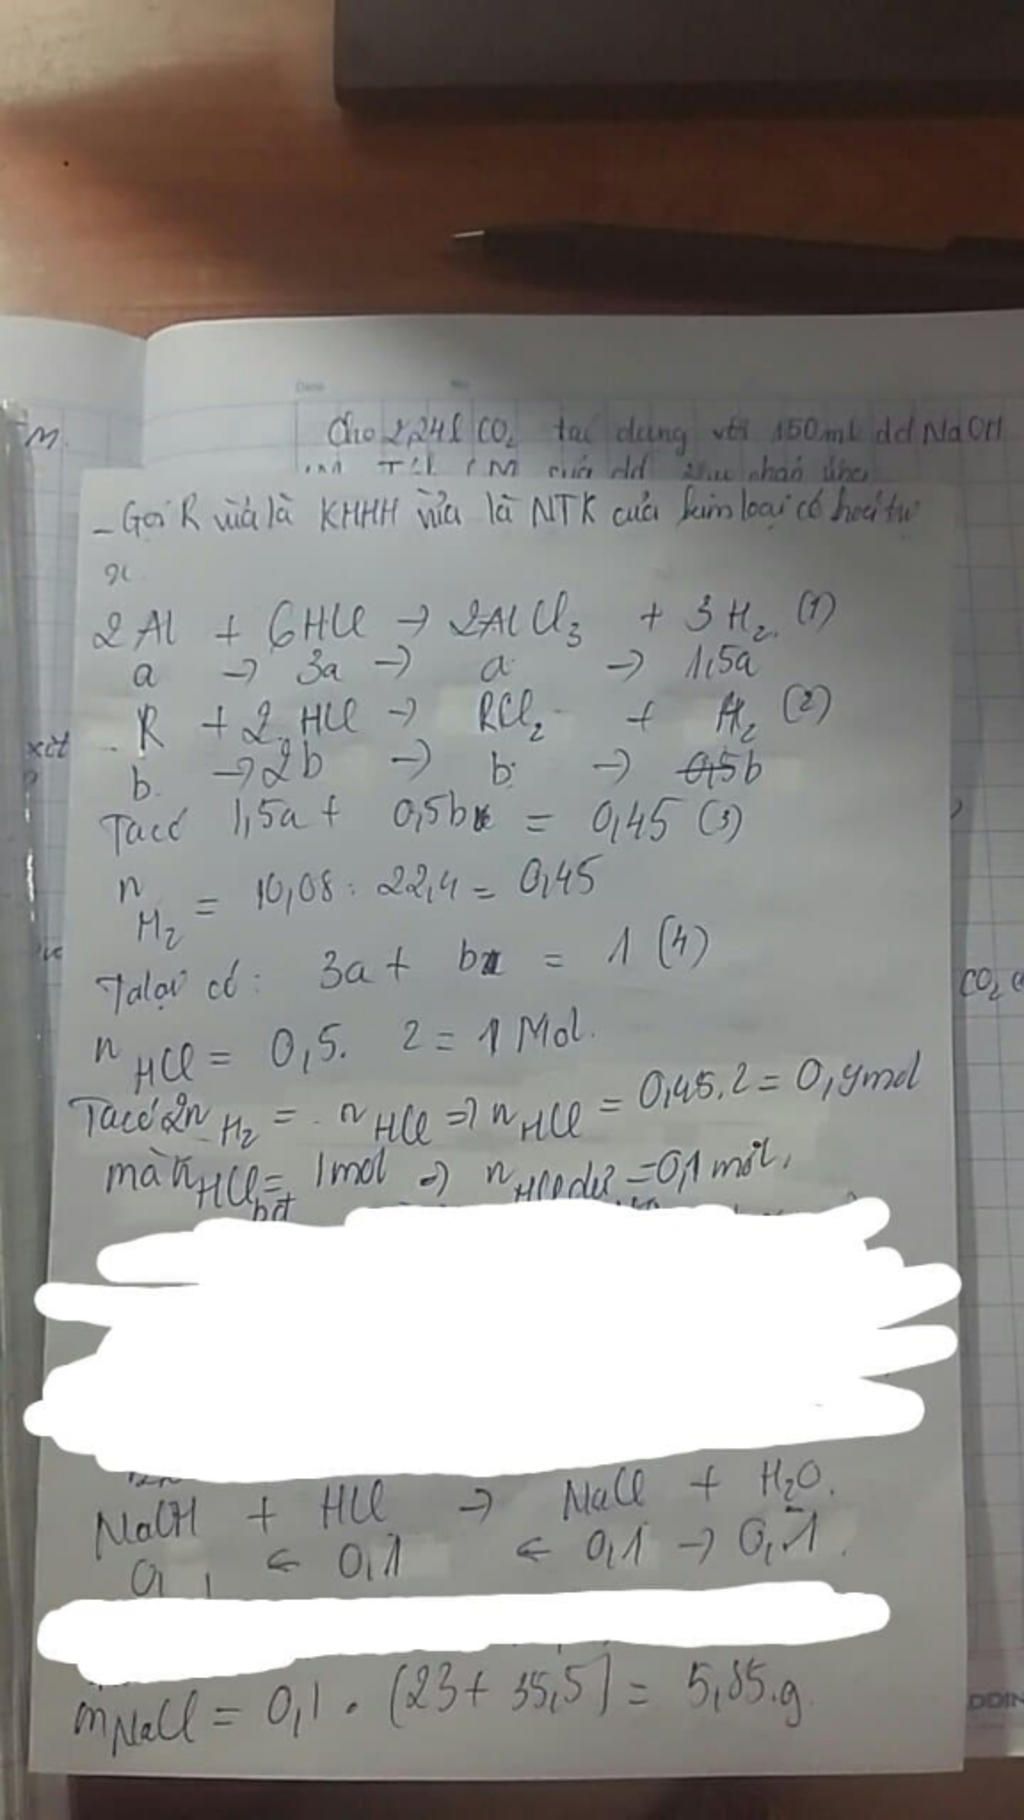 Cho 2,24l CO₂ tác dụng với 150ml dd NaOH
M.
- Gọi R vừa là KHHH vừa là NTK của kim loại có hoá trị
x
2Al + 6HCl → 2AlCl₃ + 3H₂ (1)
a → 3a → a → 1,5a
R + 2HCl → RCl₂ + H₂ (2)
b → 2b → b → 0,5b
Ta có 1,5a + 0,5bx = 0,45 (3)
n H₂ = 10,08 : 22,4 = 0,45
Ta lại có: 3a + bx = 1 (4)
n HCl = 0,5. 2 = 1 Mol.
Ta có 2n H₂ = n HCl => n HCl = 0,45.2 = 0,9mol
mà n HCl bđ = 1mol => n HCl dư = 0,1 mol,
NaOH + HCl → NaCl + H₂O.
← 0,1 ← 0,1 → 0,1.
m NaCl = 0,1 . (23 + 35,5) = 5,85.g
xét
CO₂